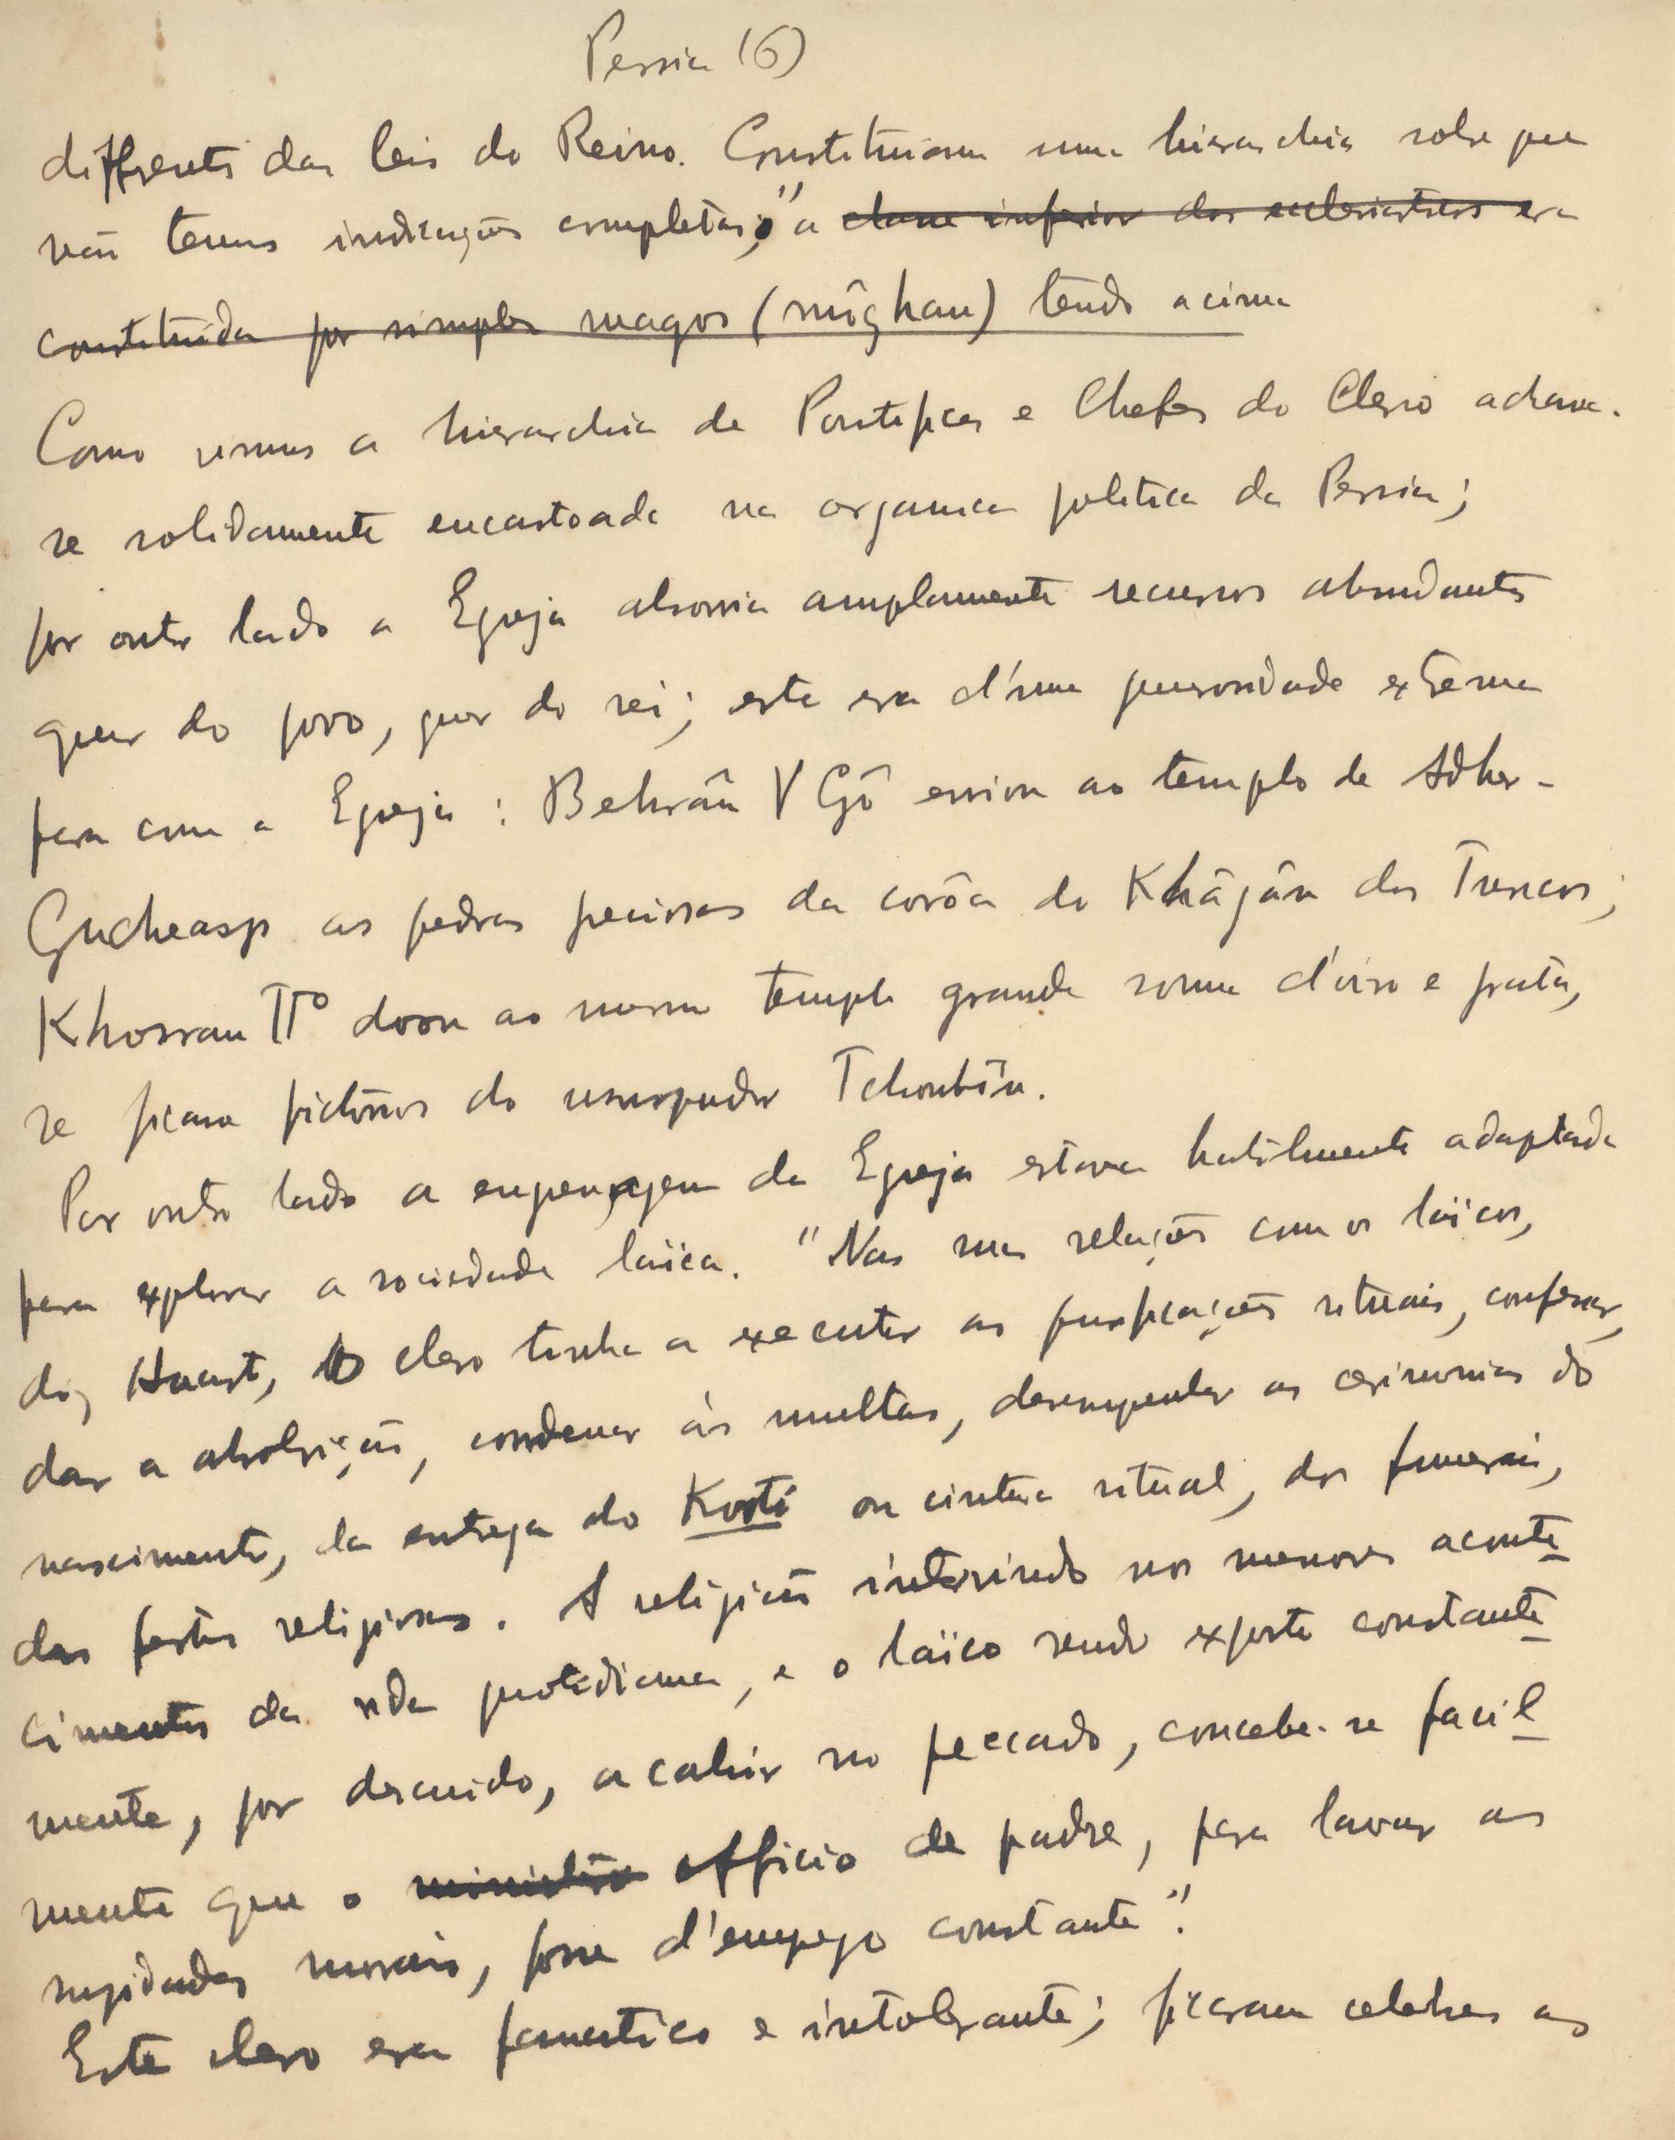 Persia (6)
differentes das leis do Reino. Constituiam uma hierarchia sobre que
não temos indicações completas;" a classe inferior dos ecclesiasticos era
constituida por simples magos (môghan) tendo acima
Como vemos a hierarchia de Pontifices e Chefes do Clero achava-
se solidamente encastoada na organica politica da Persia;
por outro lado a Egreja absorvia amplamente recursos abundantes
quer do povo, quer do rei; este era d'uma generosidade extrema
para com a Egreja: Behrân V Gô enviou ao templo de Adher-
Gucheasp as pedras preciosas da corôa do Khâgân dos Turcos;
Khosrau IIº doou ao mesmo templo grande somma d'oiro e prata,
se ficava victorioso do usurpador Tchoubîn.
Por outro lado a engrenagem da Egreja estava habilmente adaptada
para explorar a sociedade laïca. "Nas suas relações com os laïcos,
diz Huart, o clero tinha a executar as purificações rituais, confessar,
dar a absolvição, condenar ás multas, desempenhar as cerimonias do
nascimento, da entrega do Kosti ou cintura ritual, dos funerais,
das festas religiosas. A religião intervindo nos menores aconte-
cimentos da vida quotidiana, e o laïco sendo exposto constante-
mente, por descuido, a cahir no peccado, concebe-se facil-
mente que o ministério officio de padre, para lavar as
sujidades morais, fosse d'emprego constante".
Este clero era fanatico e intolerante; ficaram celebres as